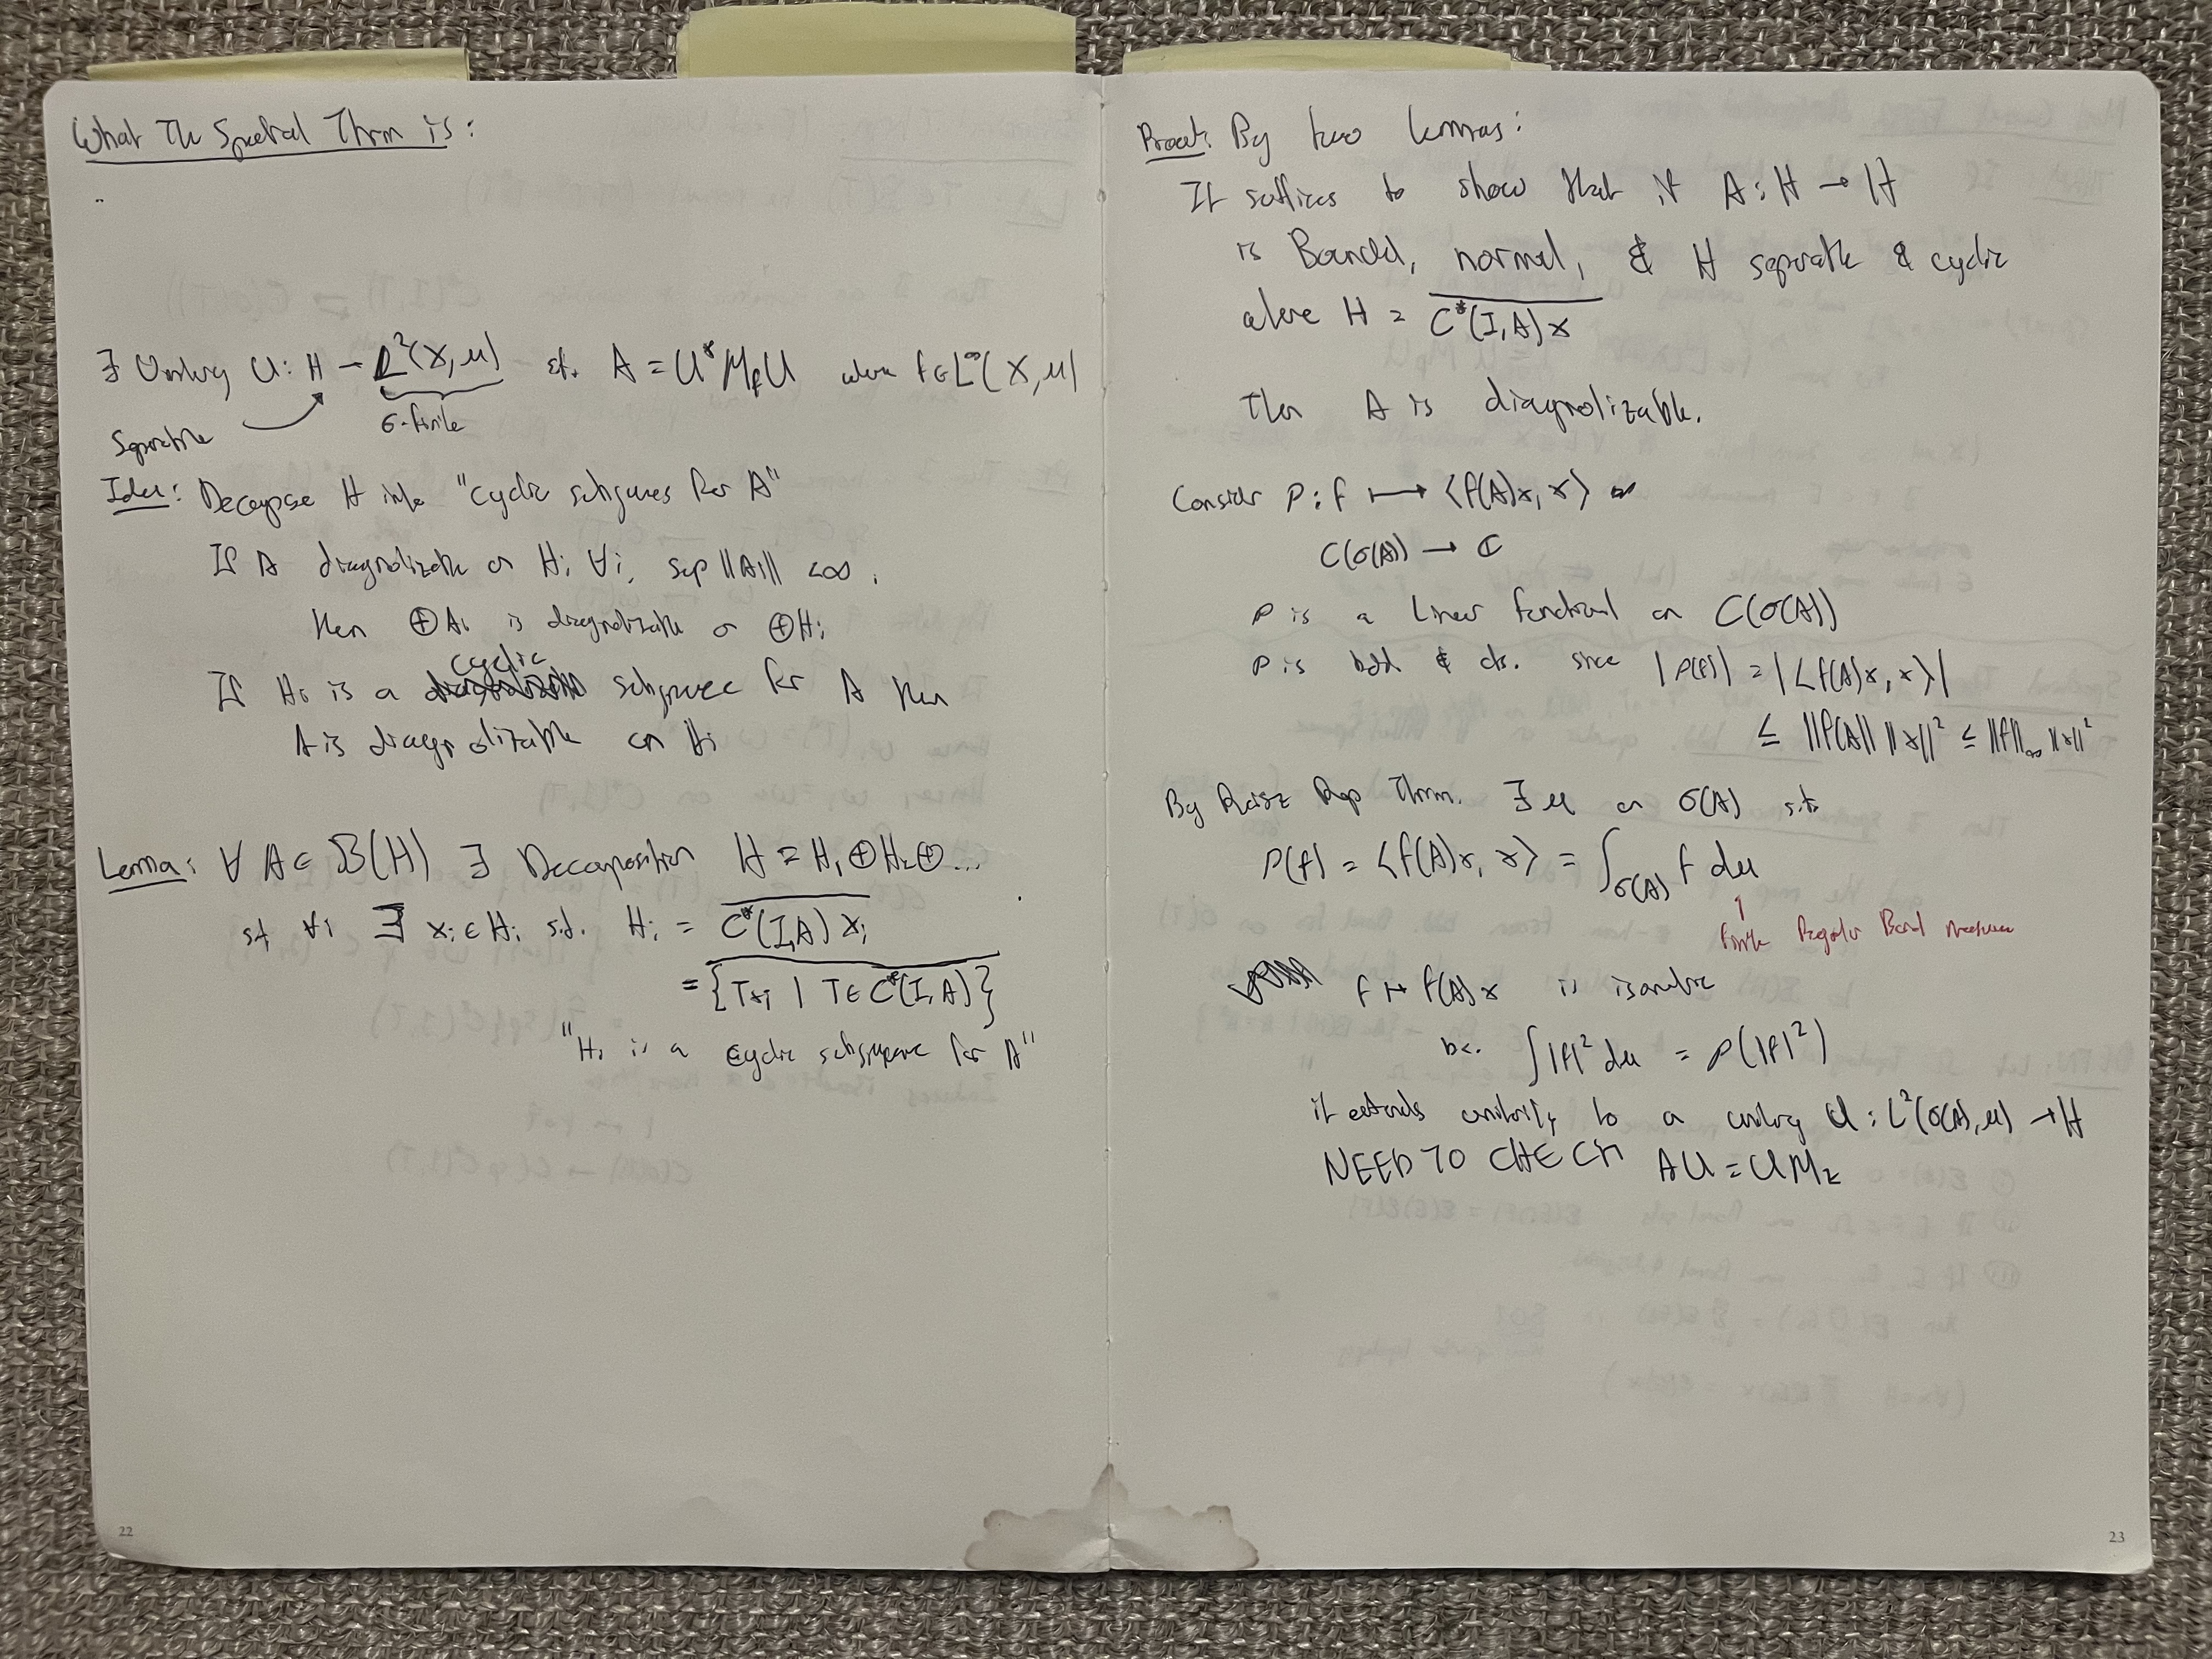 What The Spectral Thrm is:
∃ Unitary U: H → L²(X,μ) st. A = U*M_fU where f∈L^∞(X,μ)
Separable
σ-finite
Idea: Decompose H into "cyclic subspaces for A"
If A diagonalizable on H_i A_i, sup||A_i|| < ∞.
then ⊕A_i is diagonalizable on ⊕H_i
If H_i is a cyclic subspace for A then
A is diagonalizable on H_i
Lemma: ∀ A∈B(H) ∃ Decomposition H = H₁⊕H₂⊕...
st ∀i ∃ x_i∈H_i st. H_i = C*(I,A)x_i
= {Tx_i | T∈C*(I,A)}
"H_i is a cyclic subspace for A"
22
Proof: By two lemmas:
It suffices to show that if A: H → H
is Bounded, normal, & H separable & cyclic
where H = C*(I,A)x
Then A is diagonalizable.
Consider ρ: f ↦ <f(A)x, x>
C(σ(A)) → ℂ
ρ is a linear functional on C(σ(A))
ρ is bdd & cts. since |ρ(f)| = |<f(A)x, x>|
≤ ||f(A)|| ||x||² ≤ ||f||_∞ ||x||²
By Riesz Rep Thrm. ∃ μ on σ(A) st.
ρ(f) = <f(A)x, x> = ∫_σ(A) f dμ
↑
Finite Regular Borel measure
f ↦ f(A)x is isometric
bc. ∫|f|² dμ = ρ(|f|²)
it extends unitarily to a unitary U: L²(σ(A),μ) → H
NEED TO CHECK AU = UM_z
23